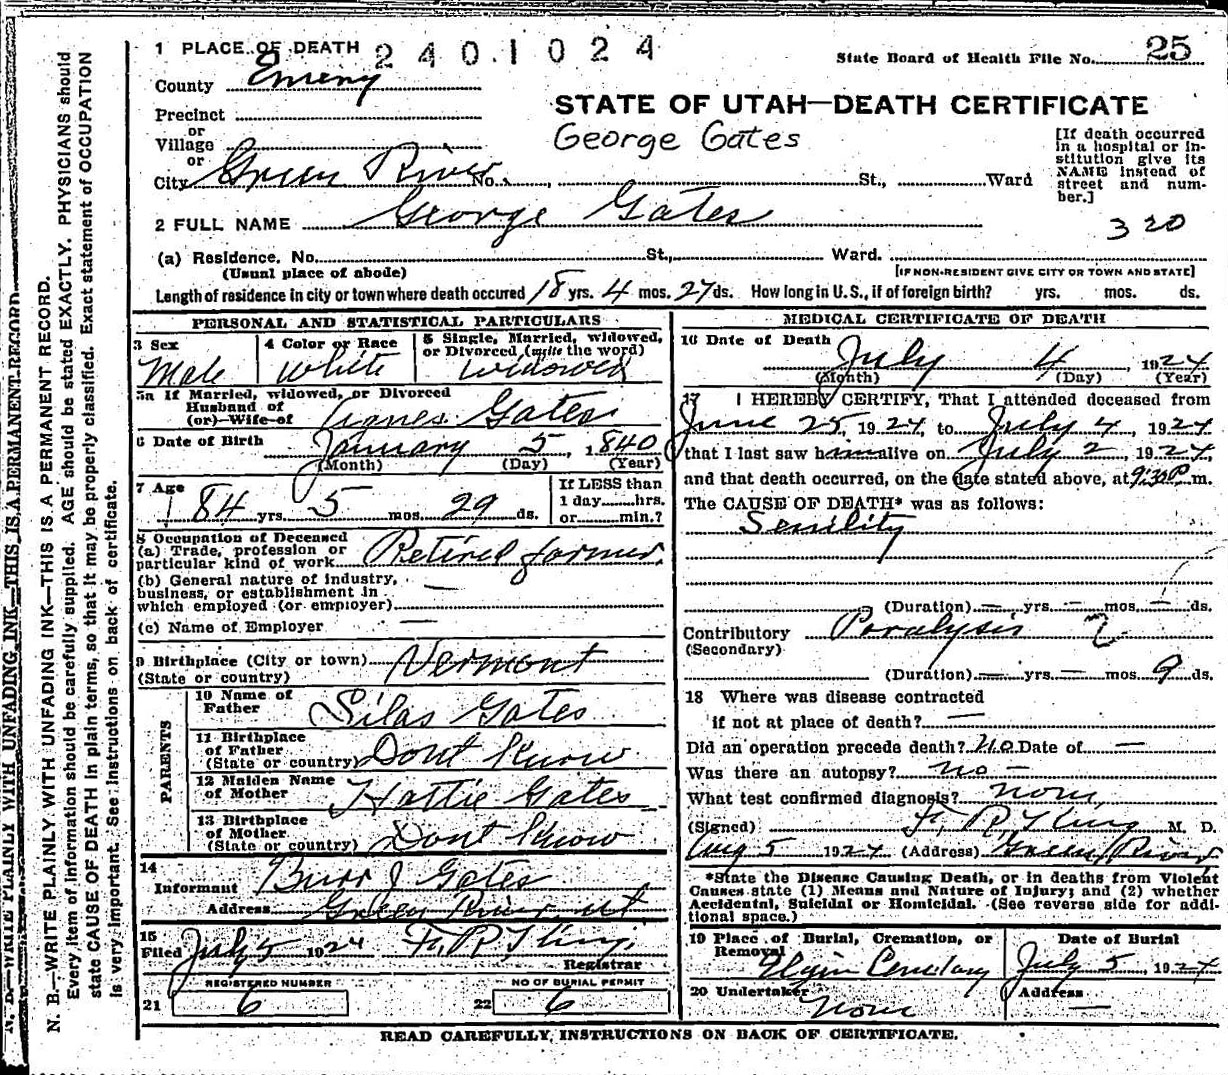 1 PLACE OF DEATH 2401024
State Board of Health File No. 25
County Emery
STATE OF UTAH—DEATH CERTIFICATE
George Gates
Precinct
or
Village
or
City Green River No. St., Ward
[If death occurred
in a hospital or in-
stitution give its
NAME instead of
street and num-
ber.]
2 FULL NAME George Gates
320
(a) Residence. No. St., Ward.
(Usual place of abode) [IF NON-RESIDENT GIVE CITY OR TOWN AND STATE]
Length of residence in city or town where death occured 18 yrs. 4 mos. 27 ds. How long in U.S., if of foreign birth? yrs. mos. ds.
PERSONAL AND STATISTICAL PARTICULARS
3 Sex
Male
4 Color or Race
White
5 Single, Married, widowed,
or Divorced (write the word)
Widowed
5a If Married, widowed, or Divorced
Husband of
(or) Wife of Agnes Gates
6 Date of Birth January 5, 1840
(Month) (Day) (Year)
7 Age
84 yrs. 5 mos. 29 ds.
If LESS than
1 day hrs.
or min.?
8 Occupation of Deceased
(a) Trade, profession or
particular kind of work Retired farmer
(b) General nature of industry,
business, or establishment in
which employed (or employer) —
(c) Name of Employer —
9 Birthplace (City or town) Vermont
(State or country)
PARENTS
10 Name of
Father Silas Gates
11 Birthplace
of Father
(State or country) Dont Know
12 Maiden Name
of Mother Hattie Gates
13 Birthplace
of Mother
(State or country) Dont Know
14
Informant Burr J Gates
Address Green River ut
15
Filed July 5 1924 F. R. King
Registrar
REGISTERED NUMBER
21 6
NO OF BURIAL PERMIT
22 6
MEDICAL CERTIFICATE OF DEATH
16 Date of Death
July 4, 1924
(Month) (Day) (Year)
17 I HEREBY CERTIFY, That I attended deceased from
June 25, 1924, to July 4, 1924
that I last saw him alive on July 2, 1924,
and that death occurred, on the date stated above, at 9:30P m.
The CAUSE OF DEATH* was as follows:
Senility
(Duration) — yrs. — mos. — ds.
Contributory Paralysis
(Secondary)
(Duration) — yrs. — mos. 9 ds.
18 Where was disease contracted
if not at place of death? —
Did an operation precede death? No Date of —
Was there an autopsy? no —
What test confirmed diagnosis? none
(Signed) F. R. King M. D.
Aug 5 1924 (Address) Green River
*State the Disease Causing Death, or in deaths from Violent
Causes state (1) Means and Nature of Injury; and (2) whether
Accidental, Suicidal or Homicidal. (See reverse side for addi-
tional space.)
19 Place of Burial, Cremation, or
Removal
Elgin Cemetary
Date of Burial
July 5, 1924
20 Undertaker
None
Address
—
READ CAREFULLY, INSTRUCTIONS ON BACK OF CERTIFICATE.
N. B.—WRITE PLAINLY WITH UNFADING INK—THIS IS A PERMANENT RECORD
N. B.—WRITE PLAINLY WITH UNFADING INK—THIS IS A PERMANENT RECORD.
Every item of information should be carefully supplied. AGE should be stated EXACTLY. PHYSICIANS should
state CAUSE OF DEATH in plain terms, so that it may be properly classified. Exact statement of OCCUPATION
is very important. See instructions on back of certificate.